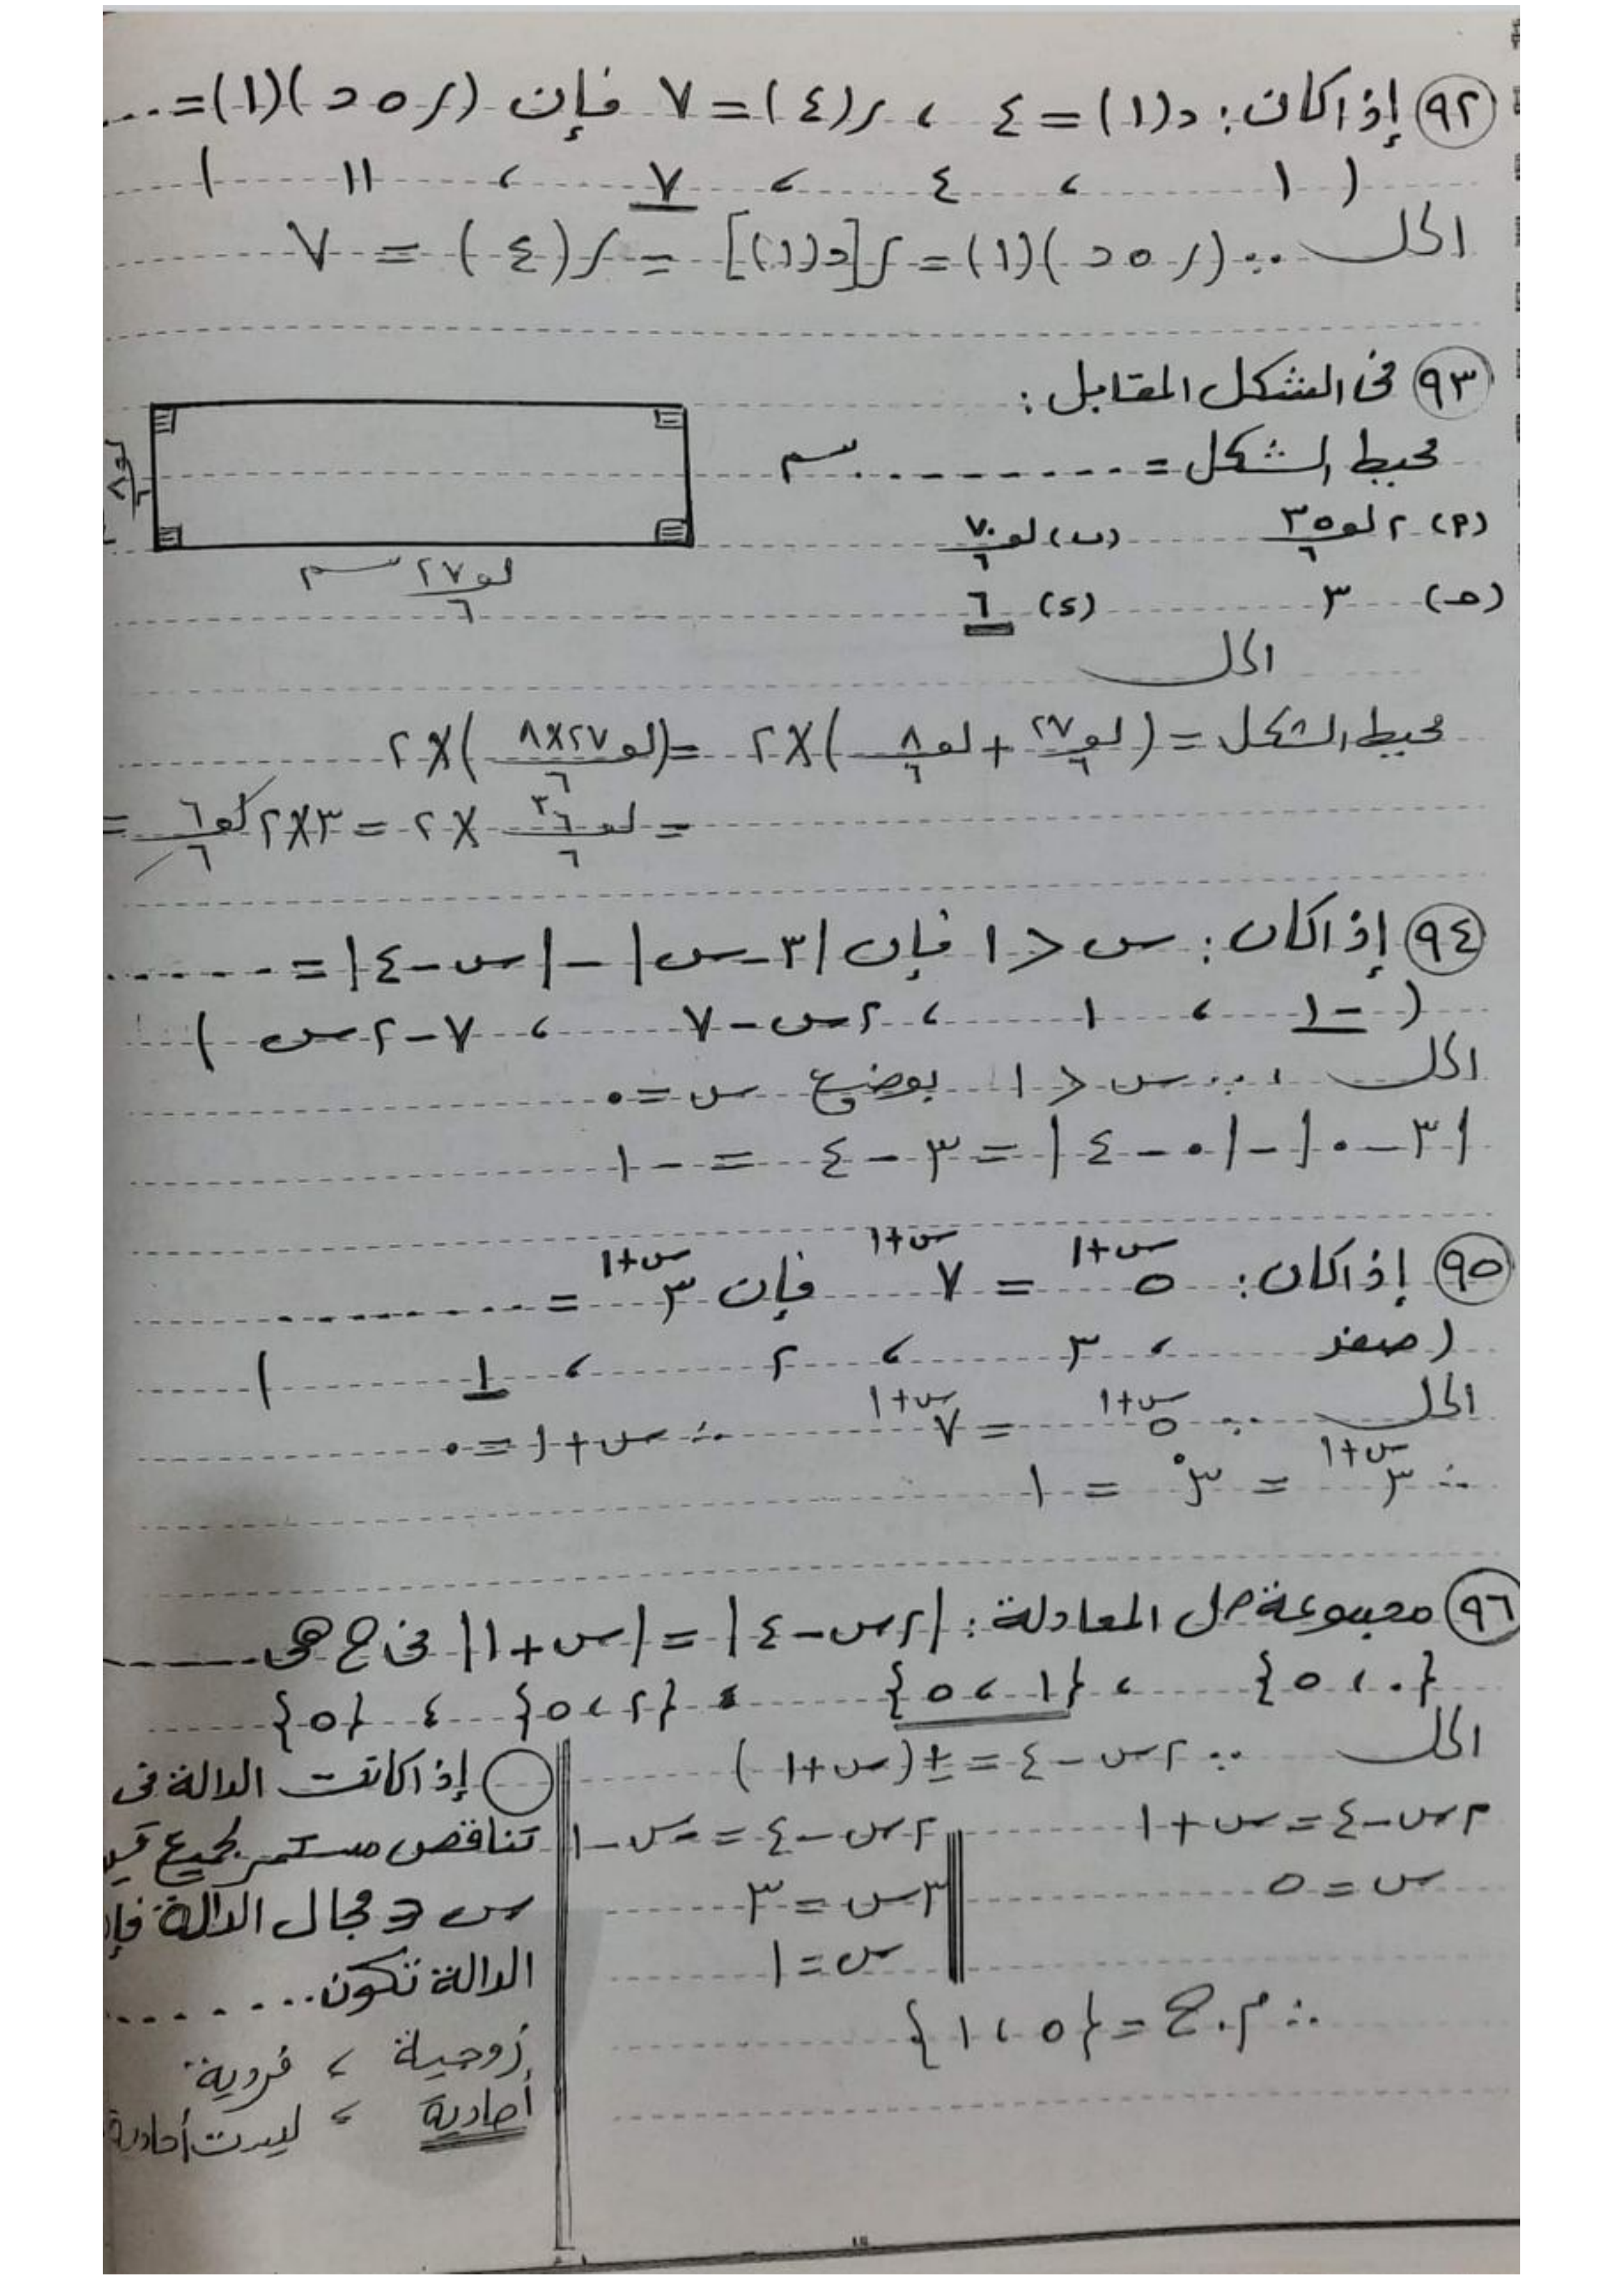 ٩٢ إذا كان: د(١) = ٤ ، ر(٤) = ٧ فإن (ر ٥ د)(١) = ...
( ١ ، ٤ ، ٧ ، ١١ )
الحل ∵ (ر ٥ د)(١) = ر[د(١)] = ر(٤) = ٧
٩٣ فى الشكل المقابل:
محيط الشكل = ......... سم
لو٦ ٨
(٩) ٢ لو٦ ٣٥ (ب) لو٦ ٧٠
لو٦ ٢٧ سم
(حـ) ٣ (s) ٦
الحل
محيط الشكل = (لو٦ ٢٧ + لو٦ ٨) × ٢ = (لو٦ ٢٧×٨) × ٢
= لو٦ ٦^٣ × ٢ = ٣×٢ لو٦ ٦ =
٩٤ إذا كان: س < ١ فإن |٣-س| - |س-٤| = ......
( -١ ، ١ ، ٢س-٧ ، ٧-٢س )
الحل ∵ س < ١ بوضع س = ٠
|٣-٠| - |٠-٤| = ٣-٤ = -١
٩٥ إذا كان: ٥^(س+١) = ٧^(س+١) فإن ٣^(س+١) = .........
( صفر ، ٣ ، ٢ ، ١ )
الحل ∵ ٥^(س+١) = ٧^(س+١) ∴ س+١ = ٠
∴ ٣^(س+١) = ٣^٠ = ١
٩٦ مجموعة حل المعادلة: |٢س-٤| = |س+١| فى ح هى ......
{٠ ، ٥} ، {١ ، ٥} ، {٢ ، ٥} ، {٥}
الحل ∵ ٢س-٤ = ±(س+١)
٢س-٤ = س+١
س = ٥
٢س-٤ = -س-١
٣س = ٣
س = ١
∴ م.ح = {٥ ، ١}
إذا كانت الدالة فى
تناقص مستمر لجميع
س ∈ مجال الدالة
الدالة تكون ........
زوجية ، فردية
أحادية ، ليست أحادية